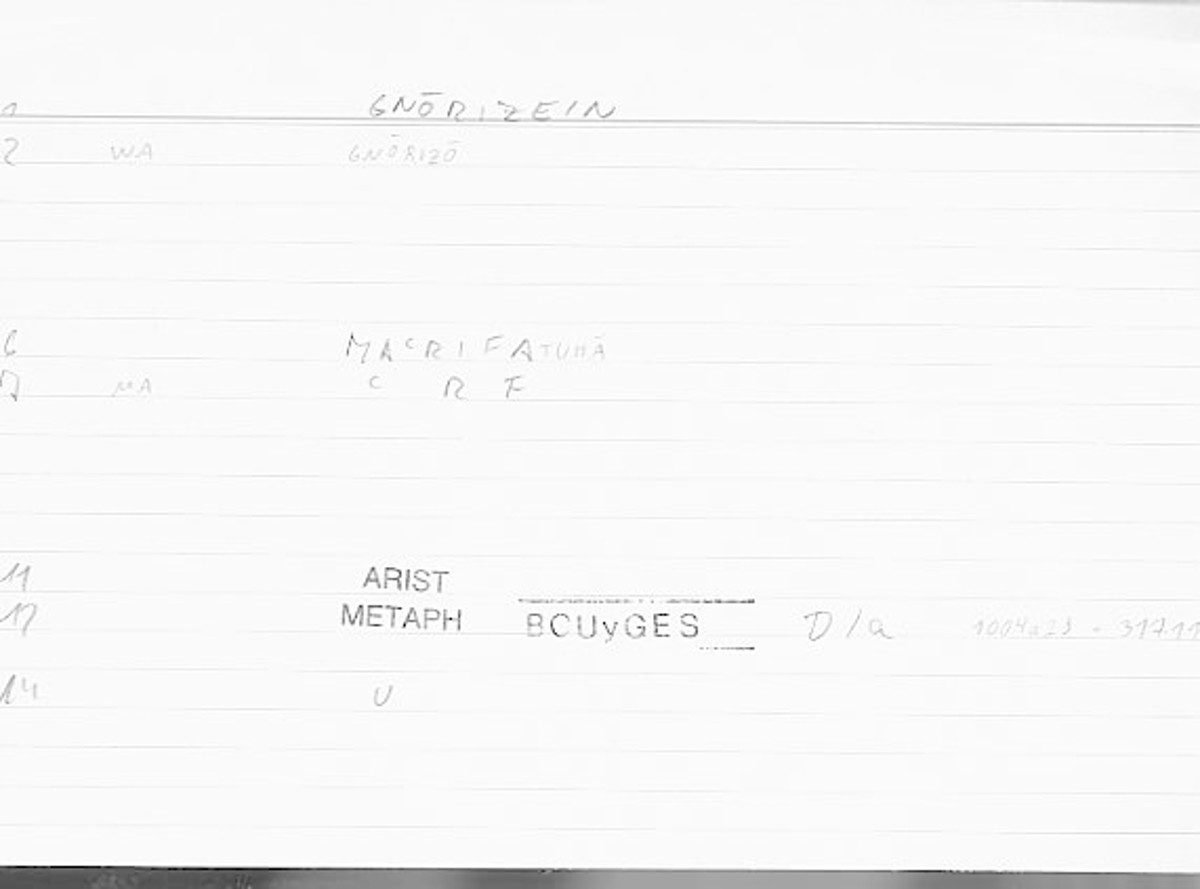 1 GNŌRIZEIN
2 WA GNŌRIZŌ
6 MAᶜRIFATUHĀ
7 MA ᶜ R F
11 ARIST
12 METAPH BCUyGES D/a 1004a23 - 317.11
14 U